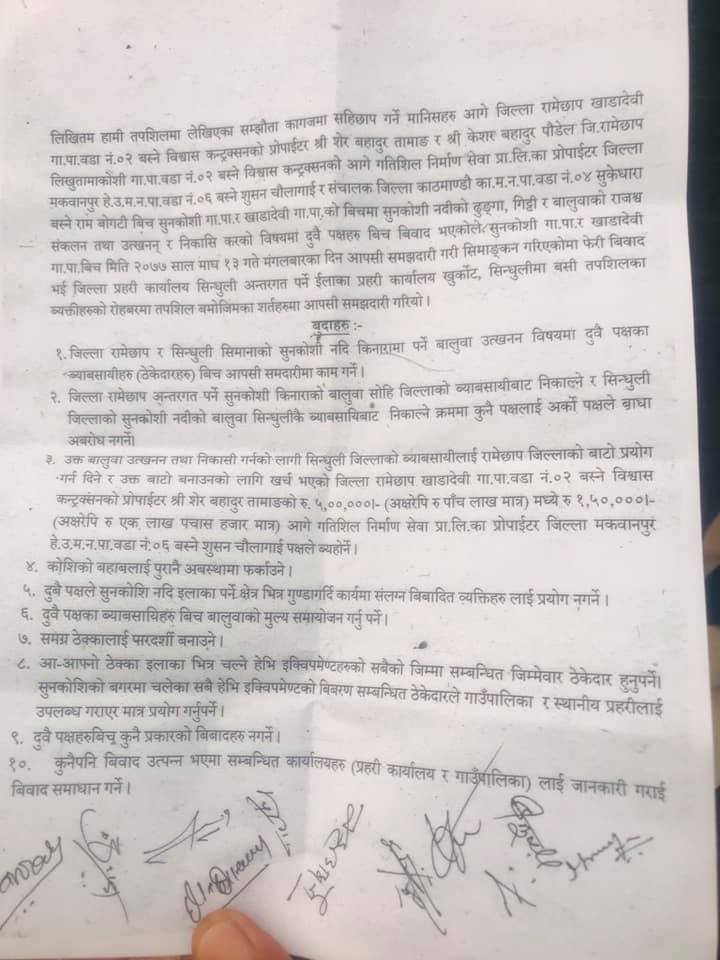 लिखितम हामी तपशिलमा लेखिएका सम्झौता कागजमा सहिछाप गर्ने मानिसहरु आगे जिल्ला रामेछाप खाडादेवी
गा.पा.वडा नं.०२ बस्ने विश्वास कन्ट्रक्सनको प्रोपाईटर श्री शेर बहादुर तामाङ र श्री केशर बहादुर पौडेल जि.रामेछाप
लिखुतामाकोशी गा.पा.वडा नं.०२ बस्ने विश्वास कन्ट्रक्सनको आगे गतिशिल निर्माण सेवा प्रा.लि.का प्रोपाईटर जिल्ला
मकवानपुर हे.उ.म.न.पा.वडा नं.०६ बस्ने शुसन चौलागाई र संचालक जिल्ला काठमाण्डौ का.म.न.पा.वडा नं.०४ सुकेधारा
बस्ने राम बोगटी बिच सुनकोशी गा.पा.र खाडादेवी गा.पा,को बिचमा सुनकोशी नदीको ढुङ्गा, गिट्टी र बालुवाको राजश्व
संकलन तथा उत्खनन् र निकासि करको विषयमा दुवै पक्षहरु बिच बिवाद भएकोले सुनकोशी गा.पा.र खाडादेवी
गा.पा.बिच मिति २०७७ साल माघ १३ गते मंगलबारका दिन आपसी समझदारी गरी सिमाङ्कन गरिएकोमा फेरी बिवाद
भई जिल्ला प्रहरी कार्यालय सिन्धुली अन्तरगत पर्ने ईलाका प्रहरी कार्यालय खुर्कोट, सिन्धुलीमा बसी तपशिलका
ब्यक्तीहरुको रोहबरमा तपशिल बमोजिमका शर्तहरुमा आपसी समझदारी गरियो ।
बुदाहरु :-
१. जिल्ला रामेछाप र सिन्धुली सिमानाको सुनकोशी नदि किनारामा पर्ने बालुवा उत्खनन विषयमा दुवै पक्षका
ब्याबसायीहरु (ठेकेदारहरु) बिच आपसी समदारीमा काम गर्ने ।
२. जिल्ला रामेछाप अन्तरगत पर्ने सुनकोशी किनाराको बालुवा सोहि जिल्लाको ब्याबसायीबाट निकाल्ने र सिन्धुली
जिल्लाको सुनकोशी नदीको बालुवा सिन्धुलीकै ब्याबसायिबाट निकाल्ने क्रममा कुनै पक्षलाई अर्को पक्षले बाधा
अबरोध नगर्ने।
३. उक्त बालुवा उत्खनन तथा निकासी गर्नको लागी सिन्धुली जिल्लाको ब्याबसायीलाई रामेछाप जिल्लाको बाटो प्रयोग
गर्न दिने र उक्त बाटो बनाउनको लागि खर्च भएको जिल्ला रामेछाप खाडादेवी गा.पा.वडा नं.०२ बस्ने विश्वास
कन्ट्रक्सनको प्रोपाईटर श्री शेर बहादुर तामाङको रु. ५,००,०००।- (अक्षरेपि रु पाँच लाख मात्र) मध्ये रु १,५०,०००।-
(अक्षरेपि रु एक लाख पचास हजार मात्र) आगे गतिशिल निर्माण सेवा प्रा.लि.का प्रोपाईटर जिल्ला मकवानपुर
हे.उ.म.न.पा.वडा नं:०६ बस्ने शुसन चौलागाई पक्षले ब्यहोर्ने ।
४. कोशिको बहाबलाई पुरानै अबस्थामा फर्काउने ।
५. दुवै पक्षले सुनकोशि नदि इलाका पर्ने क्षेत्र भित्र गुण्डागर्दि कार्यमा संलग्न बिबादित व्यक्तिहरु लाई प्रयोग नगर्ने ।
६. दुवै पक्षका ब्याबसायिहरु बिच बालुवाको मुल्य समायोजन गर्नु पर्ने ।
७. समग्र ठेक्कालाई पारदर्शी बनाउने ।
८. आ-आफ्नो ठेक्का इलाका भित्र चल्ने हेभि इक्विपमेण्टहरुको सबैको जिम्मा सम्बन्धित जिम्मेवार ठेकेदार हुनुपर्ने।
सुनकोशिको बगरमा चलेका सबै हेभि इक्विपमेण्टको बिबरण सम्बन्धित ठेकेदारले गाउँपालिका र स्थानीय प्रहरीलाई
उपलब्ध गराएर मात्र प्रयोग गर्नुपर्ने ।
९. दुवै पक्षहरुबिच कुनै प्रकारको बिबादहरु नगर्ने ।
१०. कुनैपनि बिवाद उत्पन्न भएमा सम्बन्धित कार्यालयहरु (प्रहरी कार्यालय र गाउँपालिका) लाई जानकारी गराई
बिवाद समाधान गर्ने ।